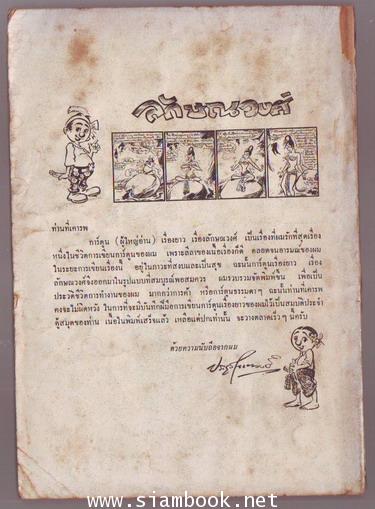 ลักษณวงศ์
ท่านที่เคารพ
การ์ตูน (ผู้ใหญ่อ่าน) เรื่องยาว เรื่องลักษณวงศ์ เป็นเรื่องที่ผมรักที่สุดเรื่อง
หนึ่งในชีวิตการเขียนการ์ตูนของผม เพราะลีลาของเนื้อเรื่องก็ดี ตลอดจนอารมณ์ของผม
ในระยะการเขียนเรื่องนี้ อยู่ในภาวะที่สงบและเป็นสุข ฉะนั้นการ์ตูนเรื่องยาว เรื่อง
ลักษณวงศ์จึงออกมาในรูปแบบที่สมบูรณ์พอสมควร ผมรวบรวมจัดพิมพ์ขึ้น เพื่อเป็น
ประวัติชีวิตการทำงานของผม มากกว่าการค้า หรือการ์ตูนธรรมดาๆ ฉะนั้นท่านที่เคารพ
คงจะไม่ผิดหวัง ในการที่จะมีบันทึกฝีมือการเขียนการ์ตูนเรื่องยาวของผมไว้เป็นสมบัติประจำ
ตู้สมุดของท่าน เนื้อในพิมพ์เสร็จแล้ว เหลือแต่ปกเท่านั้น จะวางตลาดเร็วๆ นี้ครับ
ด้วยความนับถือจากผม
www.siambook.net